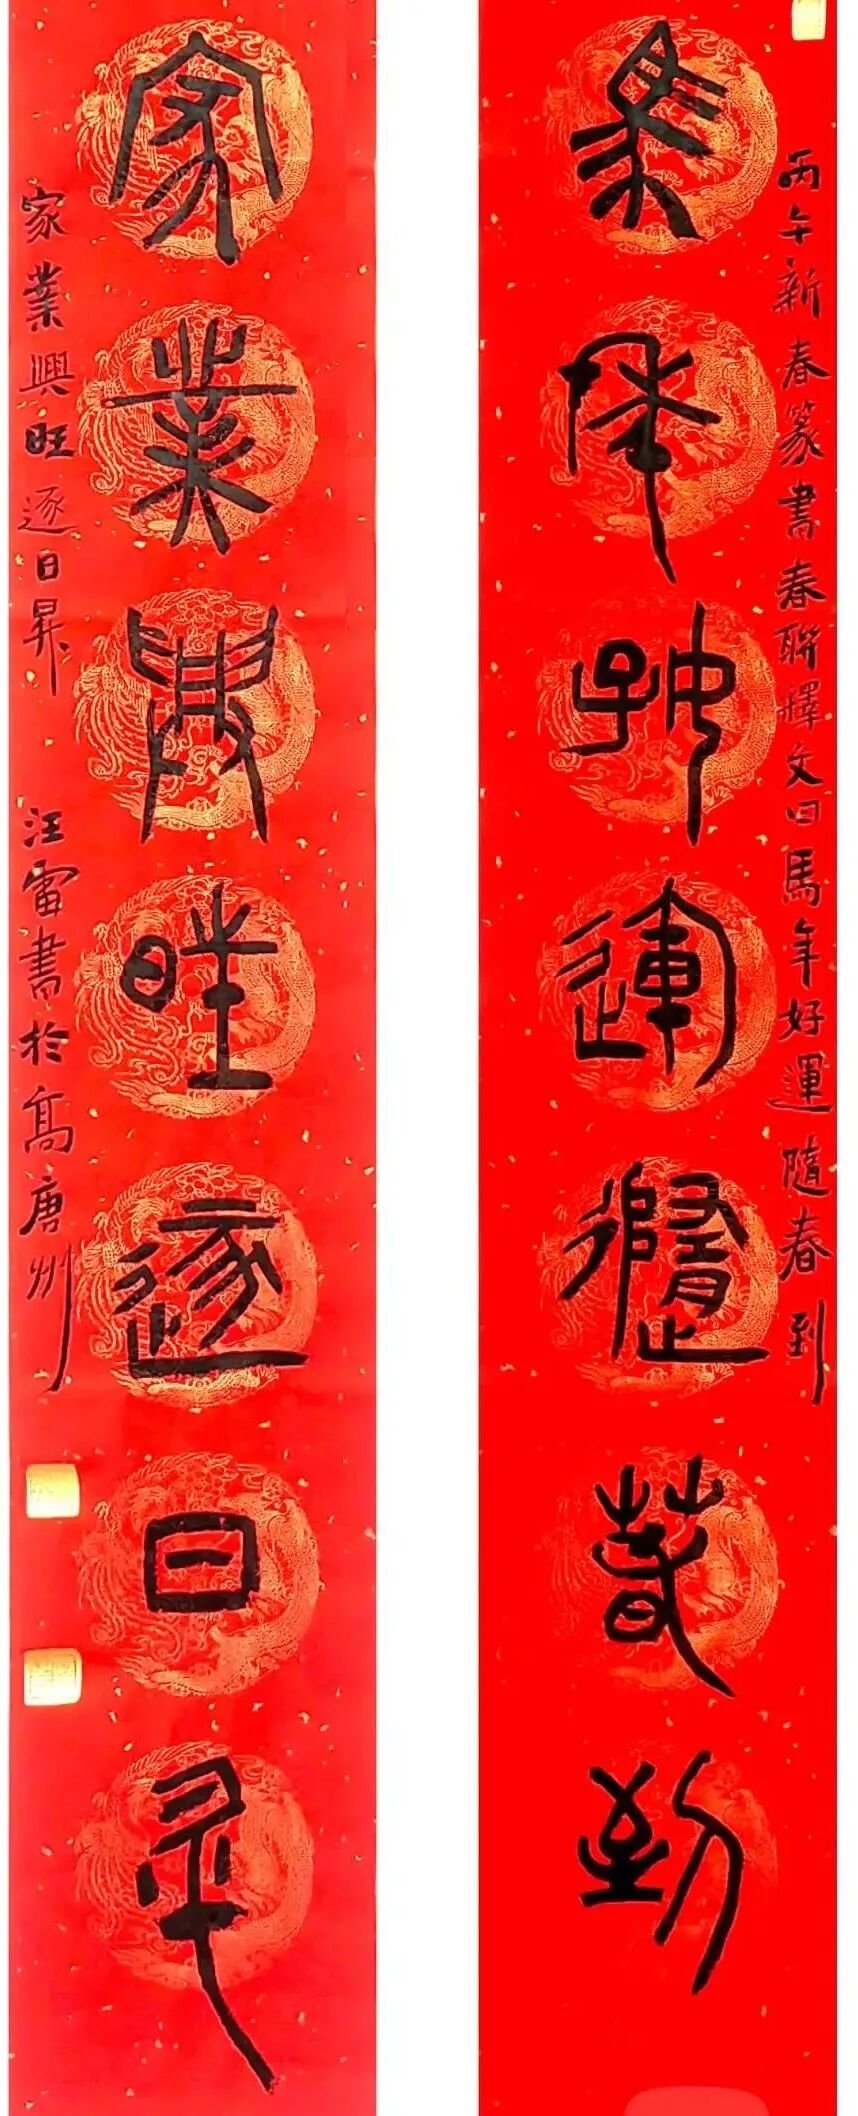 馬年好運隨春到
丙午新春篆書春聯釋文曰馬年好運隨春到
家業興旺逐日昇
家業興旺逐日昇 汪雷書於高唐州